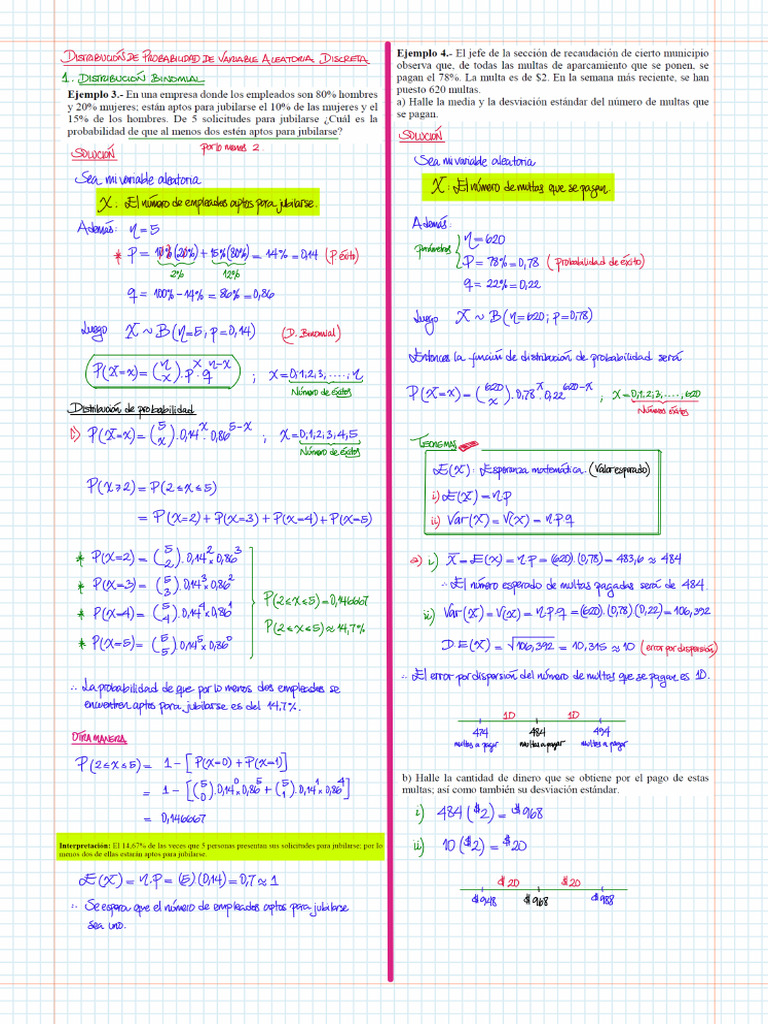 DISTRIBUCIÓN DE PROBABILIDAD DE VARIABLE ALEATORIA DISCRETA
1. DISTRIBUCIÓN BINOMIAL
Ejemplo 3.- En una empresa donde los empleados son 80% hombres
y 20% mujeres; están aptos para jubilarse el 10% de las mujeres y el
15% de los hombres. De 5 solicitudes para jubilarse ¿Cuál es la
probabilidad de que al menos dos estén aptos para jubilarse?
por lo menos 2
SOLUCIÓN
Sea mi variable aleatoria
X: El número de empleados aptos para jubilarse.
Además: n=5
* P = 10%(20%) + 15%(80%) = 14% = 0,14 (P éxito)
2% 12%
q = 100% - 14% = 86% = 0,86
Luego X ~ B(n=5, p=0,14) (D. Binomial)
P(X=x) = (n x) . p^x . q^(n-x) ; x = 0,1,2,3,....,n
Número de éxitos
Distribución de probabilidad
i) P(X=x) = (5 x) . 0,14^x . 0,86^(5-x) ; x = 0,1,2,3,4,5
Número de éxitos
P(X≥2) = P(2≤x≤5)
= P(X=2) + P(X=3) + P(X=4) + P(X=5)
* P(X=2) = (5 2) . 0,14^2 x 0,86^3
* P(X=3) = (5 3) . 0,14^3 x 0,86^2
* P(X=4) = (5 4) . 0,14^4 x 0,86^1
* P(X=5) = (5 5) . 0,14^5 x 0,86^0
P(2≤x≤5) = 0,146667
P(2≤x≤5) ≈ 14,7%
∴ La probabilidad de que por lo menos dos empleados se
encuentren aptos para jubilarse es del 14,7%.
OTRA MANERA
P(2≤x≤5) = 1 - [P(X=0) + P(X=1)]
= 1 - [(5 0) 0,14^0 x 0,86^5 + (5 1) . 0,14^1 x 0,86^4]
= 0,146667
Interpretación: El 14,67% de las veces que 5 personas presentan sus solicitudes para jubilarse; por lo
menos dos de ellas estarán aptos para jubilarse.
E(X) = n.P = (5)(0,14) = 0,7 ≈ 1
∴ Se espera que el número de empleados aptos para jubilarse
sea uno.
Ejemplo 4.- El jefe de la sección de recaudación de cierto municipio
observa que, de todas las multas de aparcamiento que se ponen, se
pagan el 78%. La multa es de $2. En la semana más reciente, se han
puesto 620 multas.
a) Halle la media y la desviación estándar del número de multas que
se pagan.
SOLUCIÓN
Sea mi variable aleatoria
X: El número de multas que se pagan.
Además:
parámetros
n = 620
P = 78% = 0,78 (probabilidad de éxito)
q = 22% = 0,22
Luego X ~ B(n=620; p=0,78)
Entonces la función de distribución de probabilidad será
P(X=x) = (620 x) . 0,78^x . 0,22^(620-x) ; x = 0,1,2,3,....,620
Número éxitos
TEOREMAS
E(X): Esperanza matemática. (Valor esperado)
i) E(X) = n.p
ii) Var(X) = V(X) = n.p.q
a) i) X̄ = E(X) = n.p = (620).(0,78) = 483,6 ≈ 484
∴ El número esperado de multas pagadas será de 484.
ii) Var(X) = V(X) = n.P.q = (620).(0,78)(0,22) = 106,392
D.E(X) = √106,392 = 10,315 ≈ 10 (error por dispersión)
∴ El error por dispersión del número de multas que se pagan es 10.
10 10
474 484 494
multas a pagar multas a pagar multas a pagar
b) Halle la cantidad de dinero que se obtiene por el pago de estas
multas; así como también su desviación estándar.
i) 484 ($2) = $968
ii) 10 ($2) = $20
$20 $20
$948 $968 $988